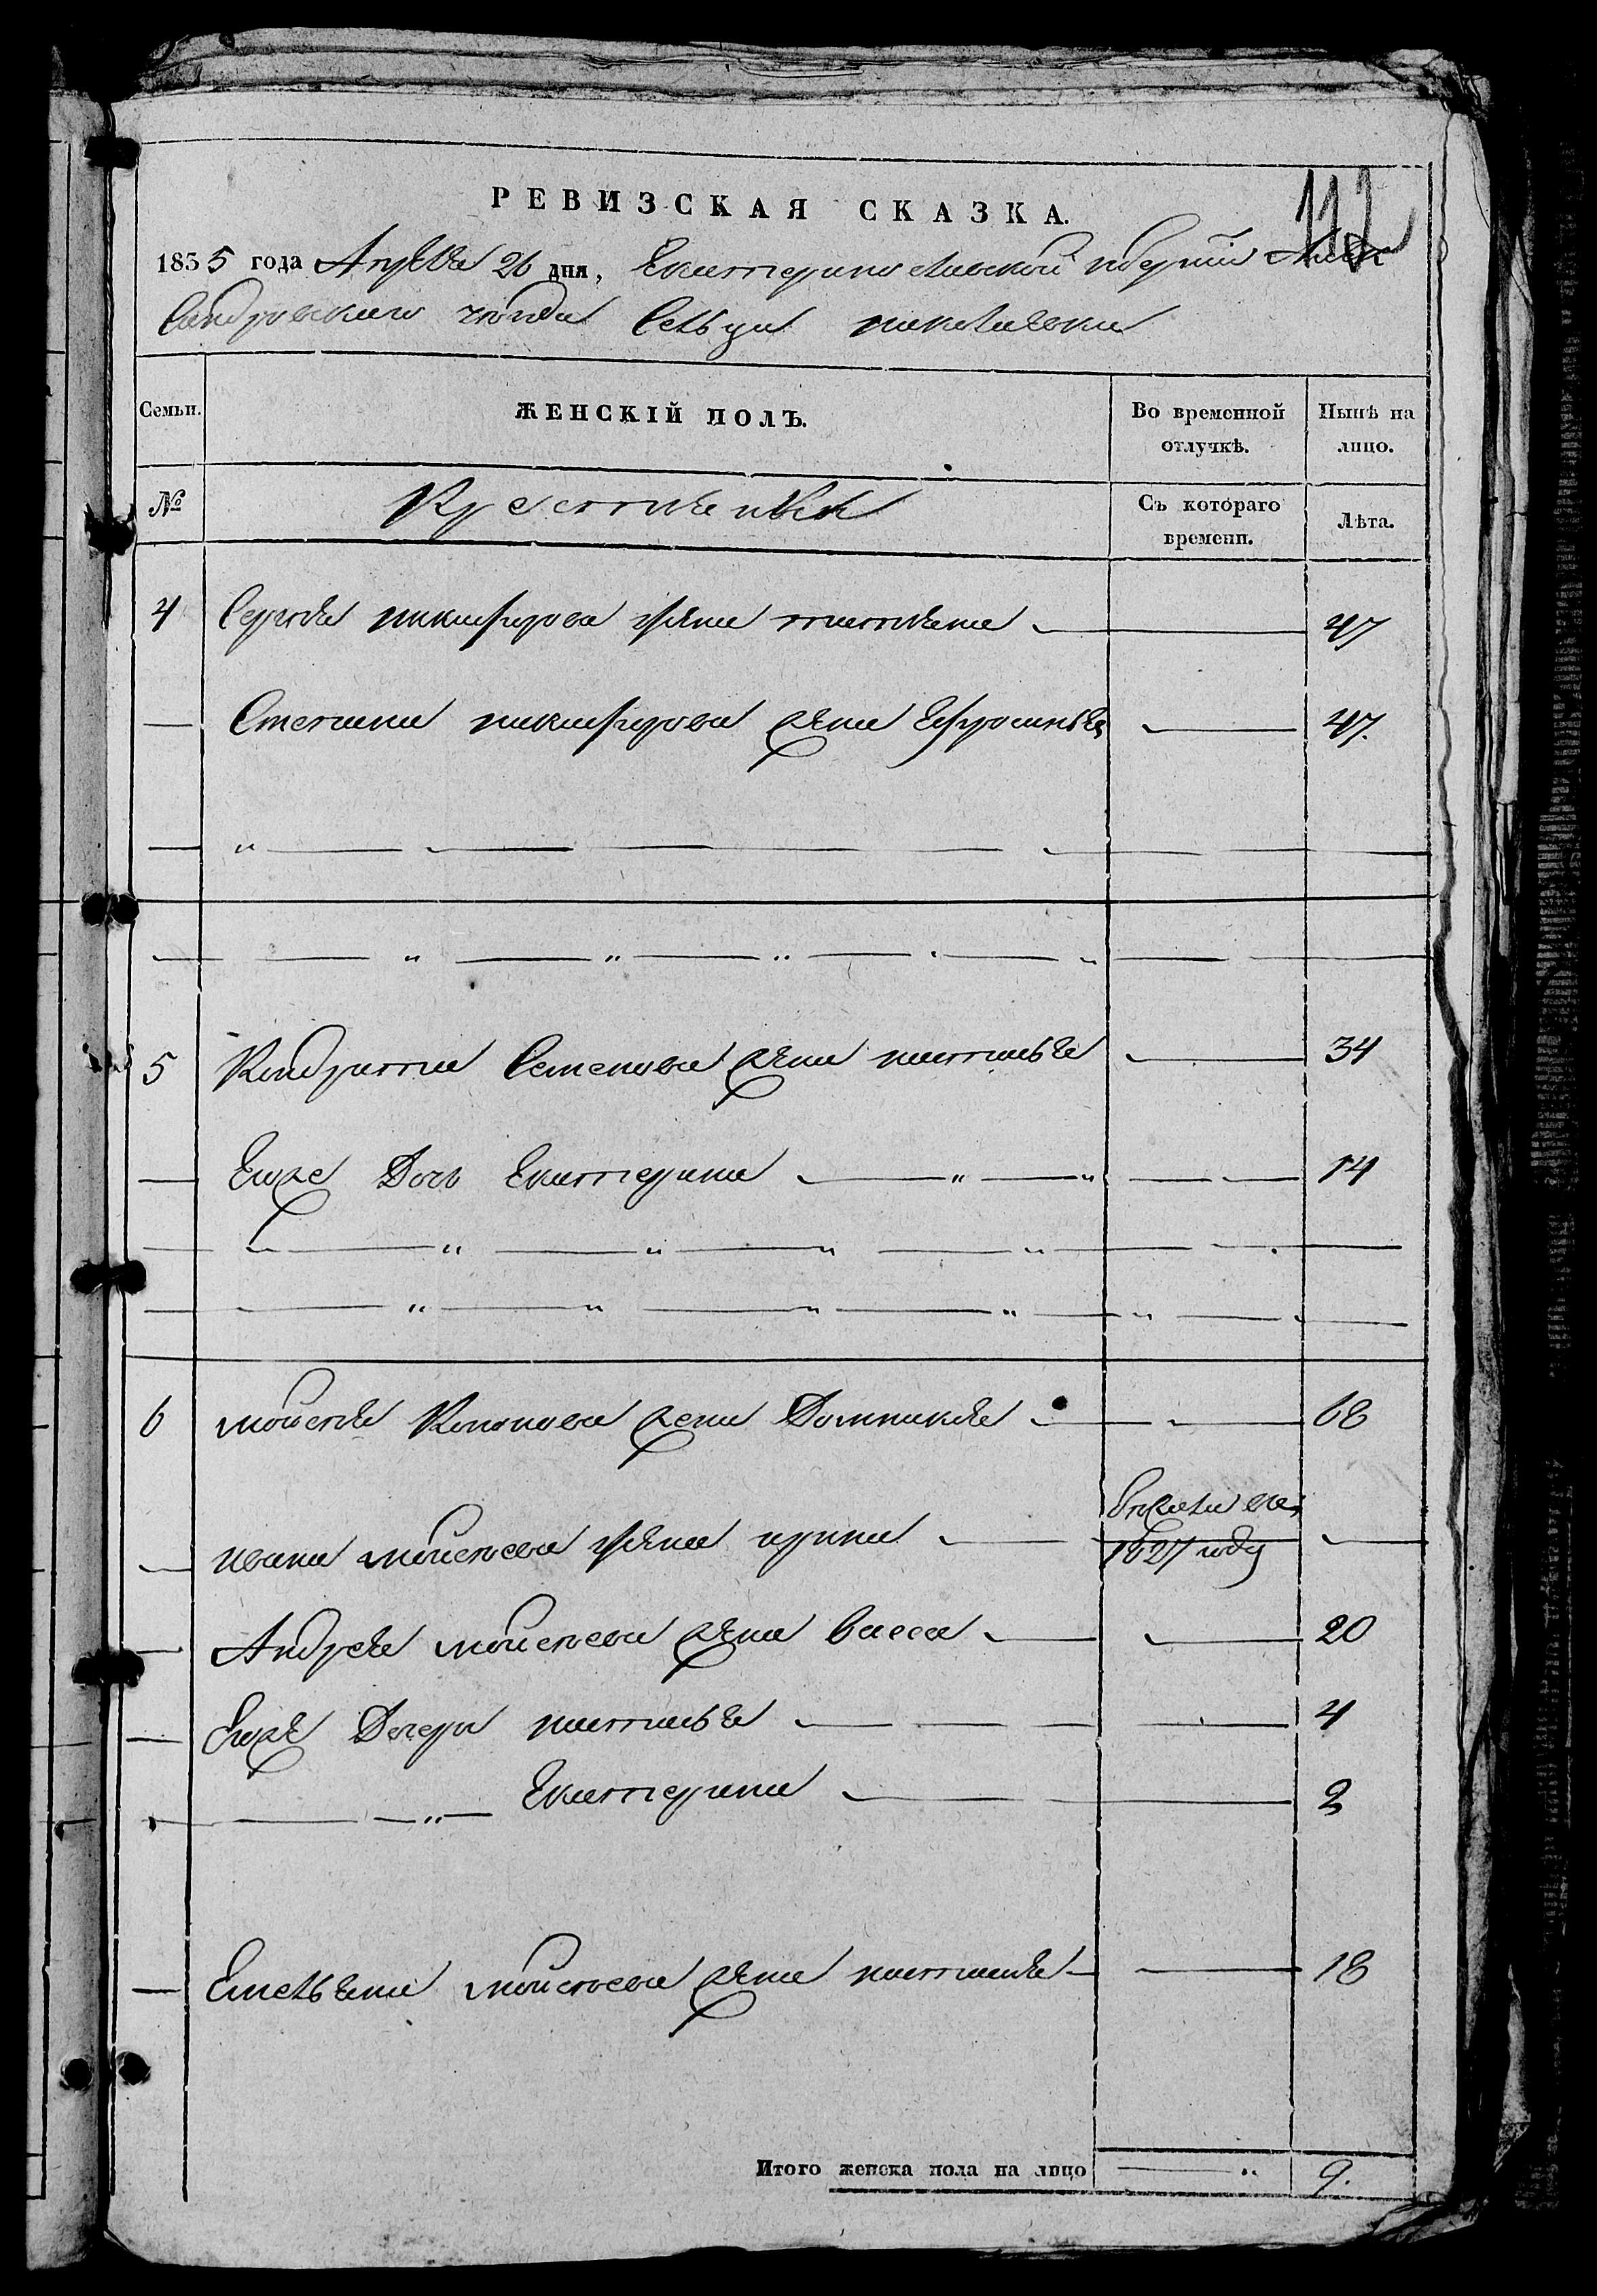 112
РЕВИЗСКАЯ СКАЗКА.
1835 года Апреля 26 дня, Екатеринославской губернии Алек
сандровского уезда Сельца николаевки
Семьи. ЖЕНСКІЙ ПОЛЪ. Во временной отлучкѣ. Нынѣ на лицо.
№ Крестьянки Съ котораго времени. Лѣта.
4 Сергея никифорова жена татьяна 47
Степана никифорова жена Ефросинья 47.
5 Кондратия Семенова жена наталья 34
Егоже Дочь Екатерина 14
6 мойсея Кононова жена Домникия 68
ивана мойсеева жена ирина 1827 году
Андрея мойсеева жена васса 20
Егоже Дочери наталья 4
Екатерина 2
Емельяна мойсеева жена наталия 18
Итого женска пола на лицо 9.